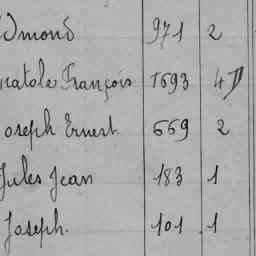 Edmond 971 2
natole François 1693 4D
oseph Ernest 669 2
Jules Jean 183 1
Joseph. 101 1